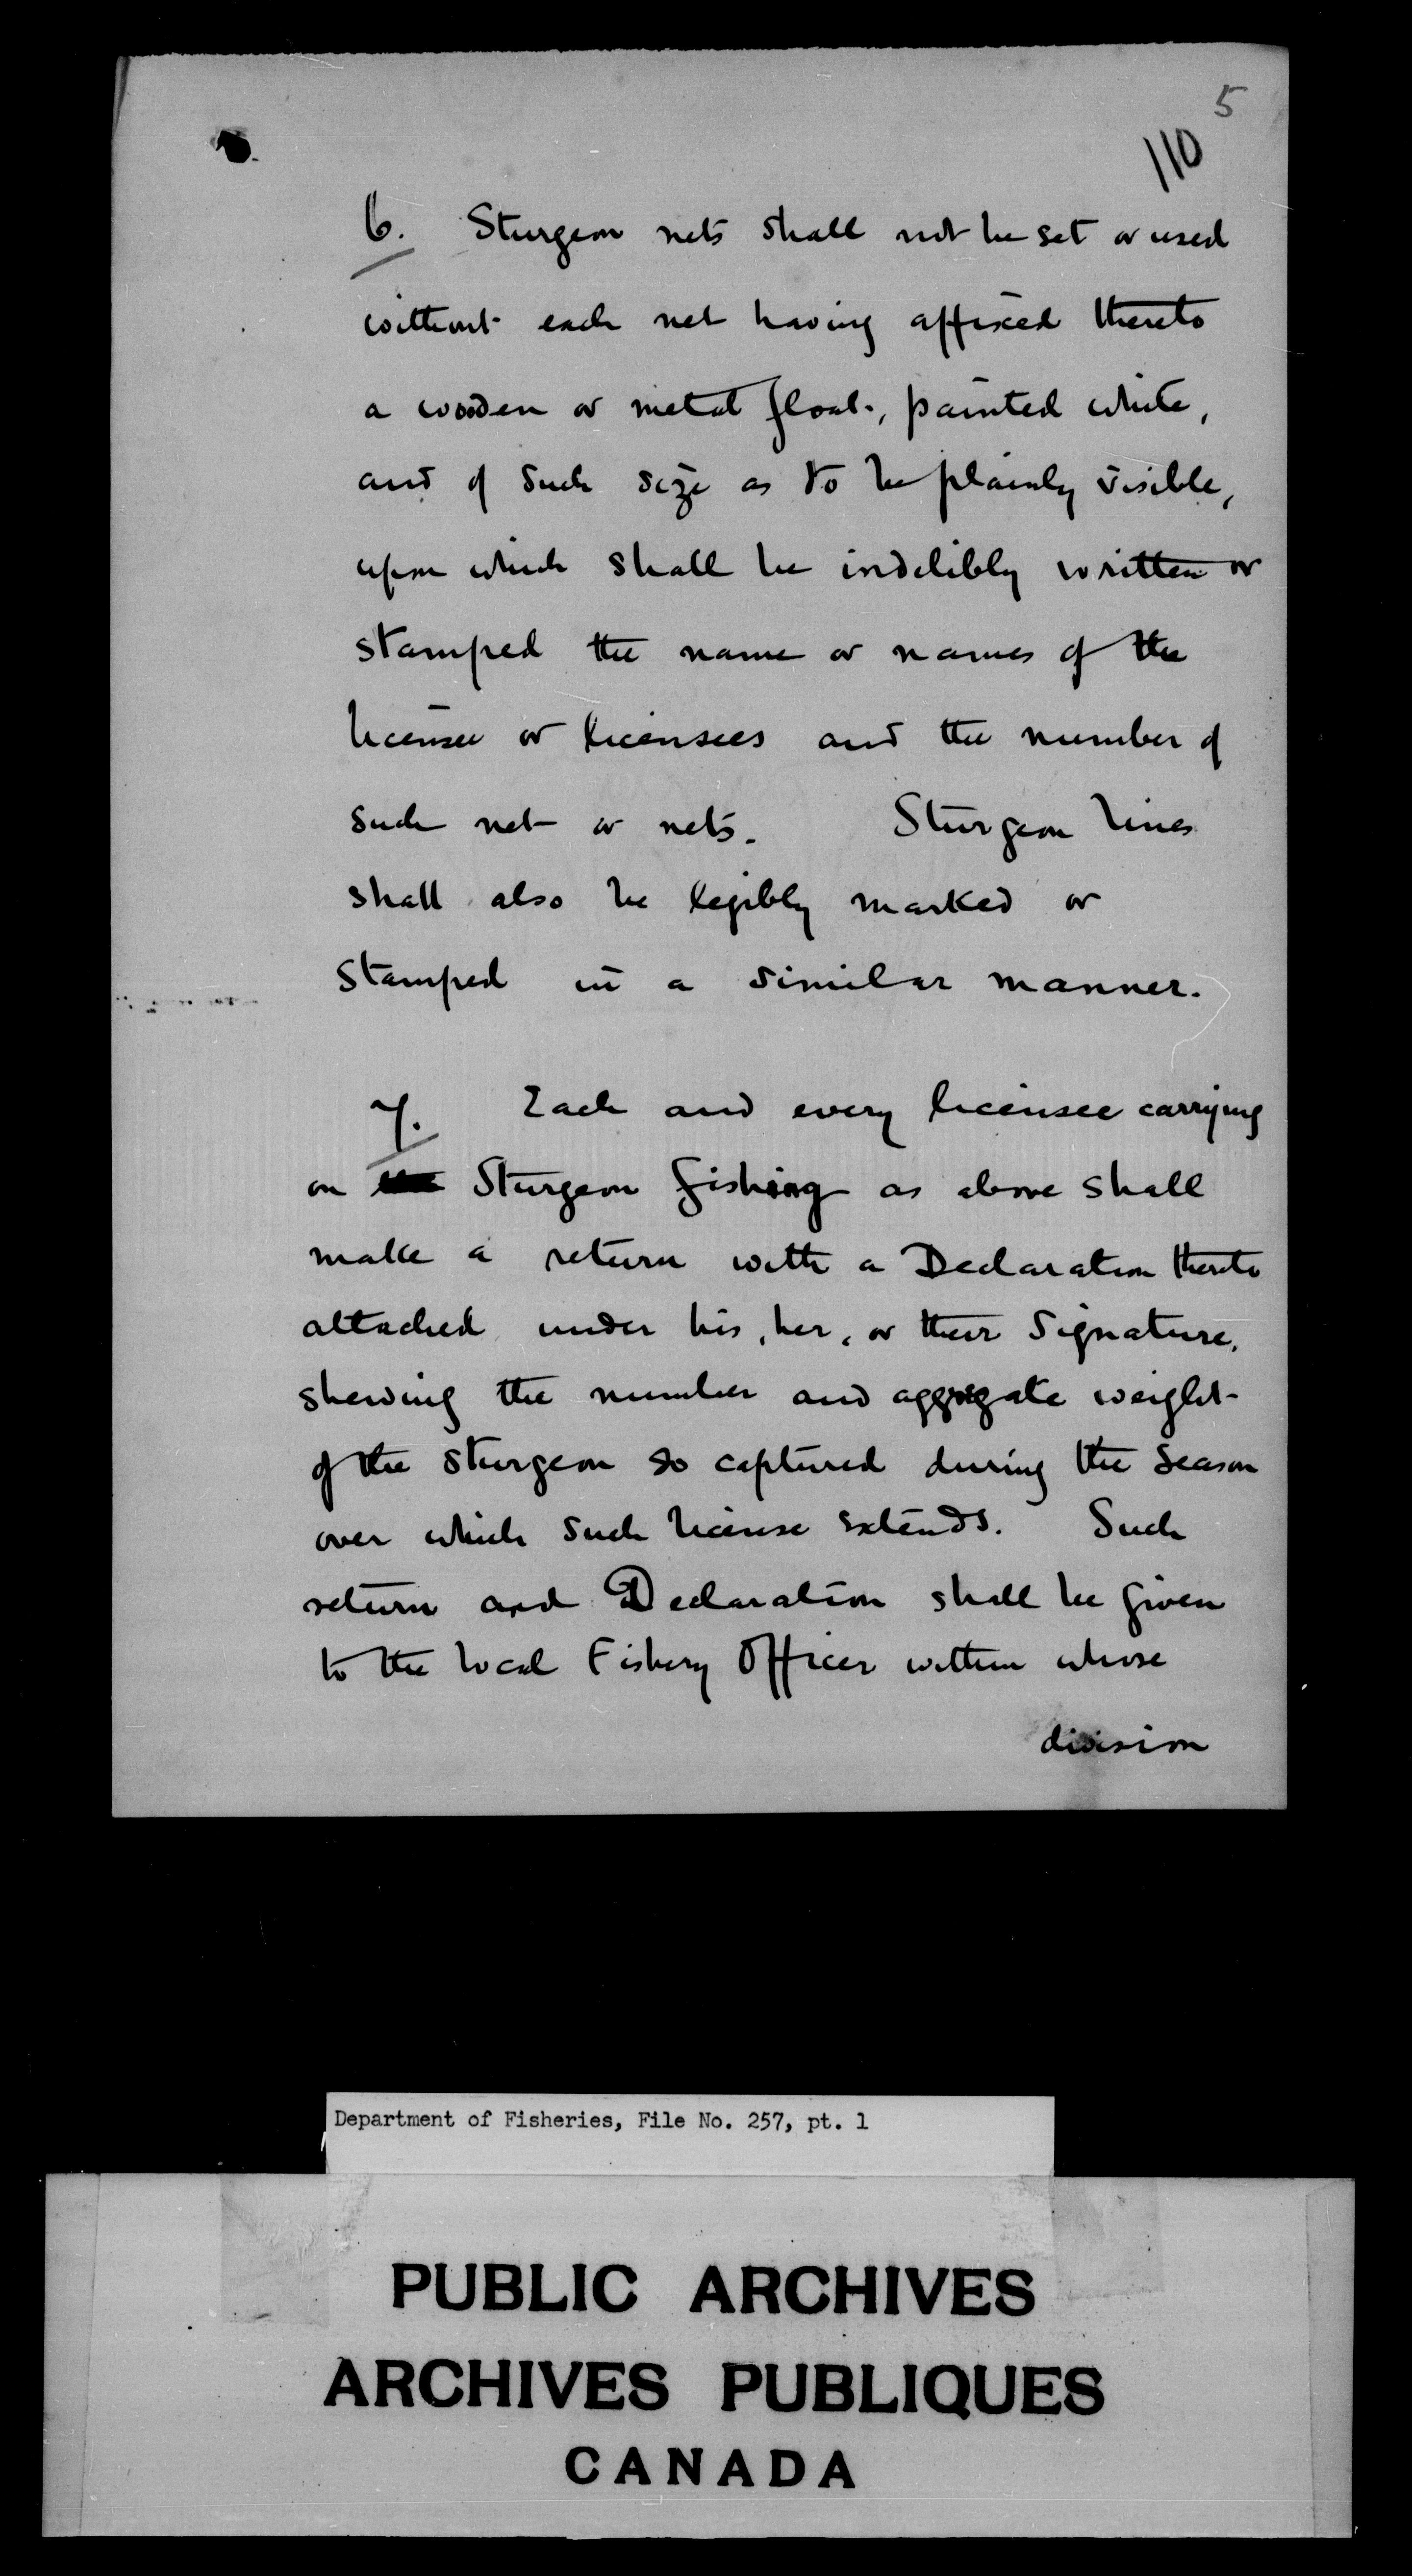 5
110
6. Sturgeon nets shall not be set or used
without each net having affixed thereto
a wooden or metal float, painted white,
and of such size as to be plainly visible,
upon which shall be indelibly written or
stamped the name or names of the
licensee or licensees and the number of
such net or nets. Sturgeon lines
shall also be legibly marked or
stamped in a similar manner.
7. Each and every licensee carrying
on Sturgeon fishing as above shall
make a return with a Declaration thereto
attached under his, her, or their signature,
shewing the number and aggregate weight
of the sturgeon so captured during the season
over which such license extends. Such
return and Declaration shall be given
to the local Fishery Officer within whose
division
Department of Fisheries, File No. 257, pt. 1
PUBLIC ARCHIVES
ARCHIVES PUBLIQUES
CANADA